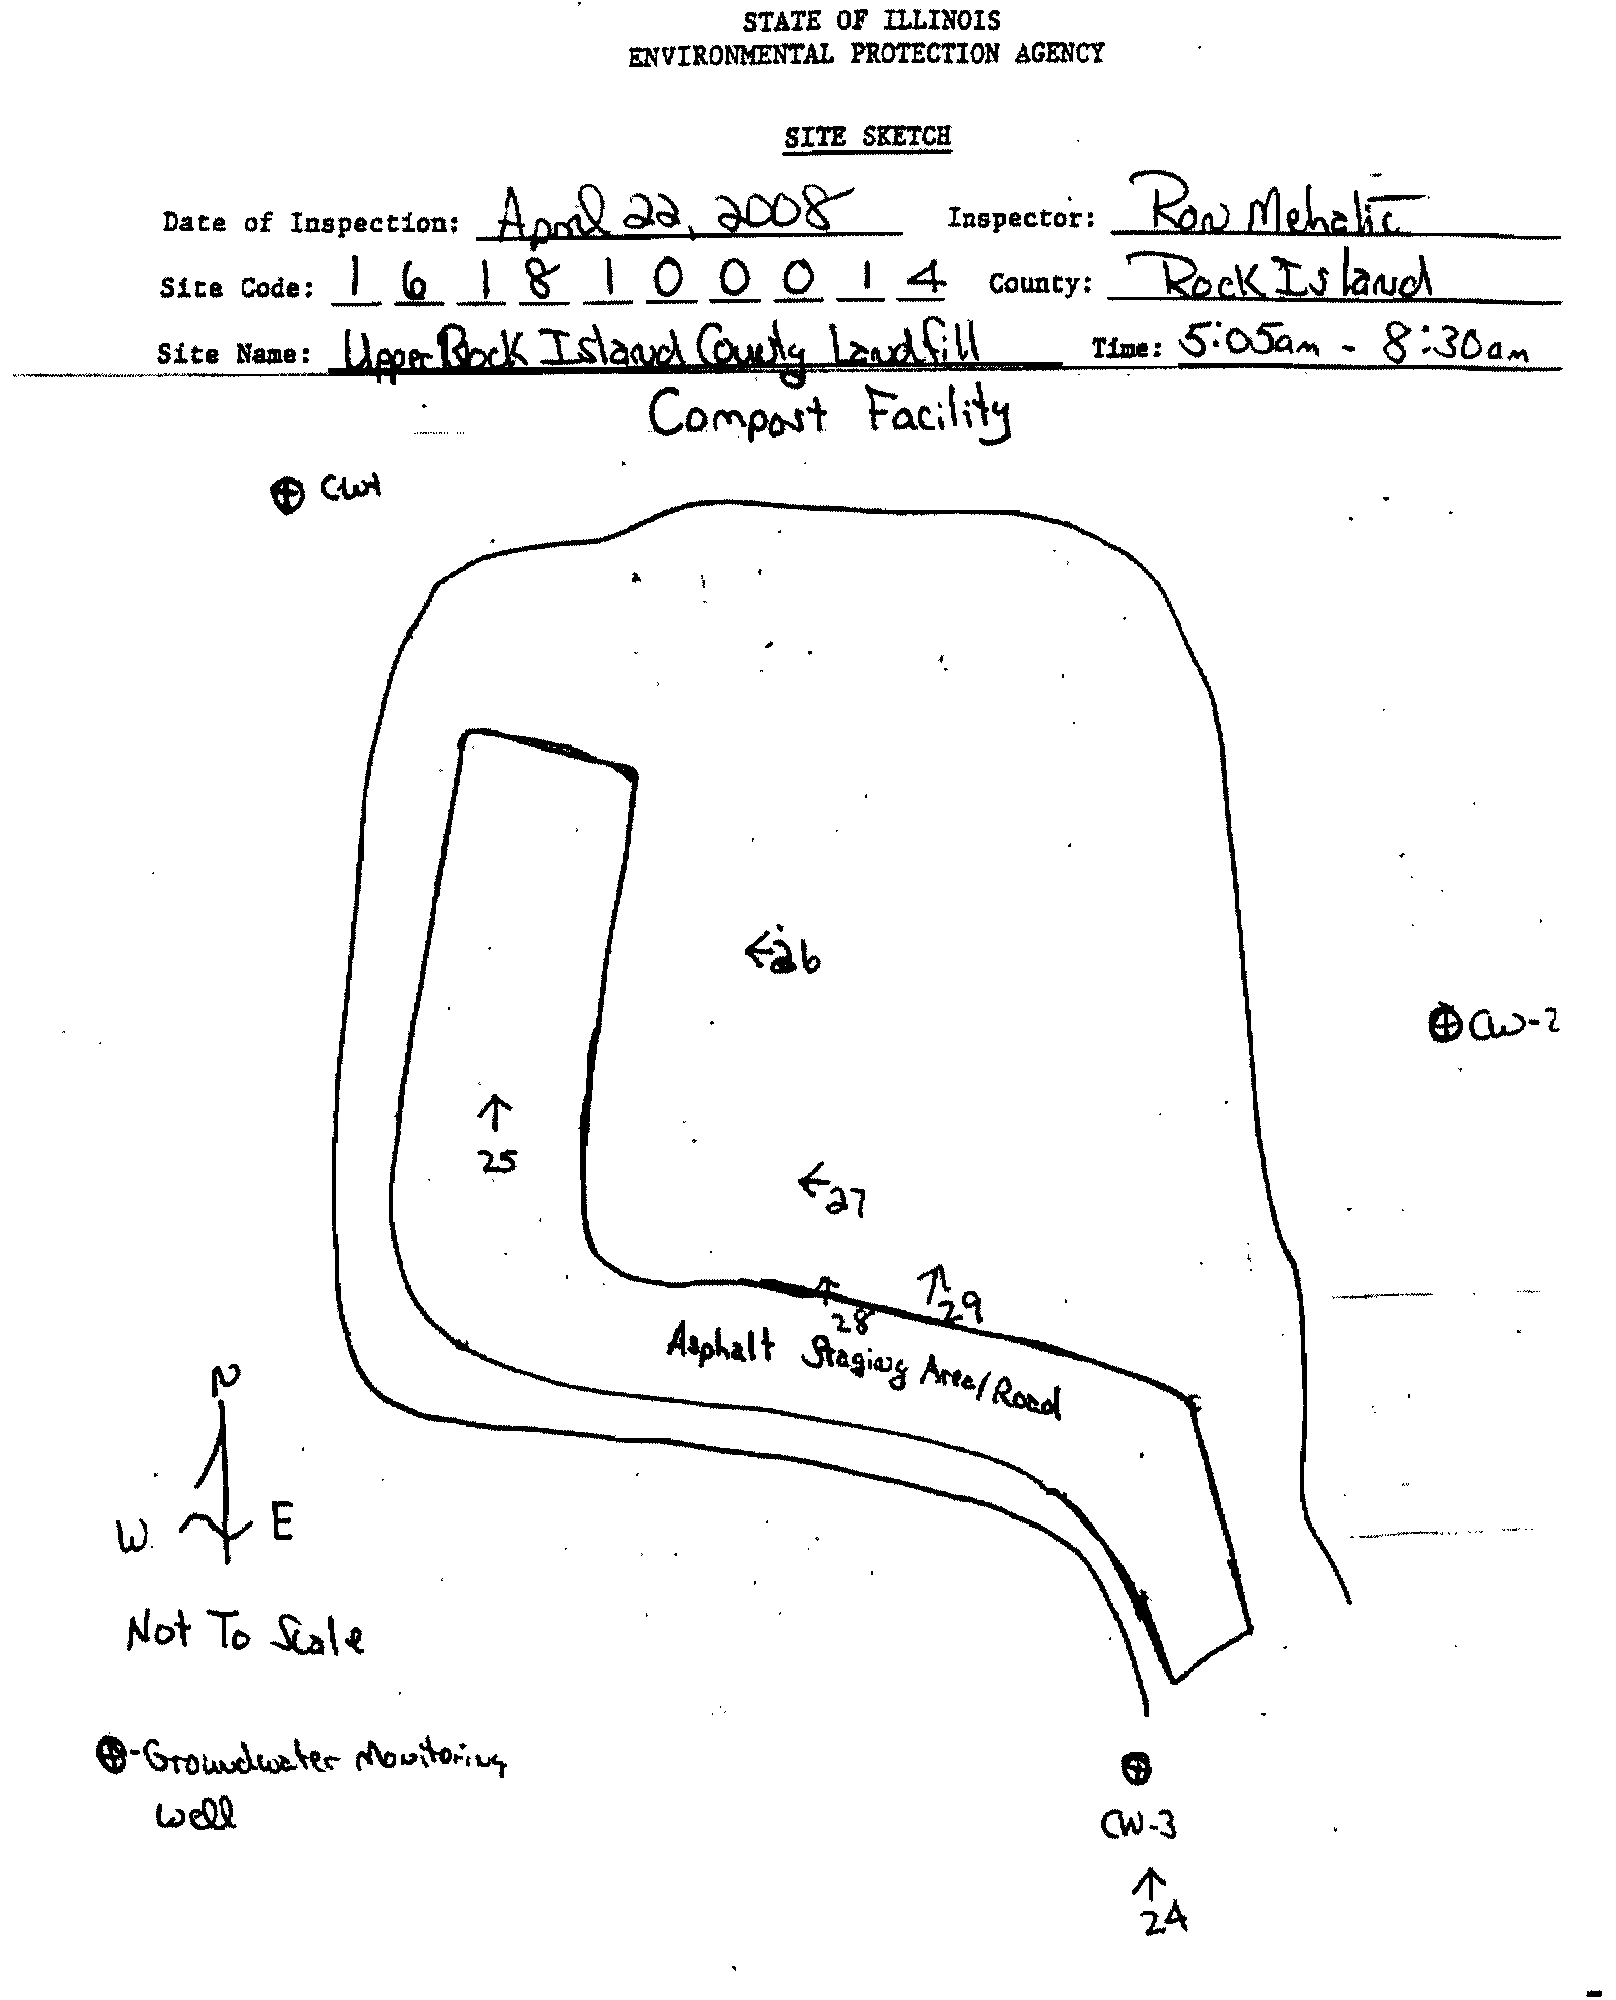 STATE OF ILLINOIS
ENVIRONMENTAL PROTECTION AGENCY
SITE SKETCH
Date of Inspection: April 22, 2008 Inspector: Ron Mehalic
Site Code: 1 6 1 8 1 0 0 0 1 4 County: Rock Island
Site Name: Upper Rock Island County Landfill Time: 5:05am - 8:30am
Compost Facility
CW1
26
CW-2
25
27
29
28
Asphalt Staging Area/Road
N
W E
Not To Scale
-Groundwater Monitoring
Well
CW-3
24